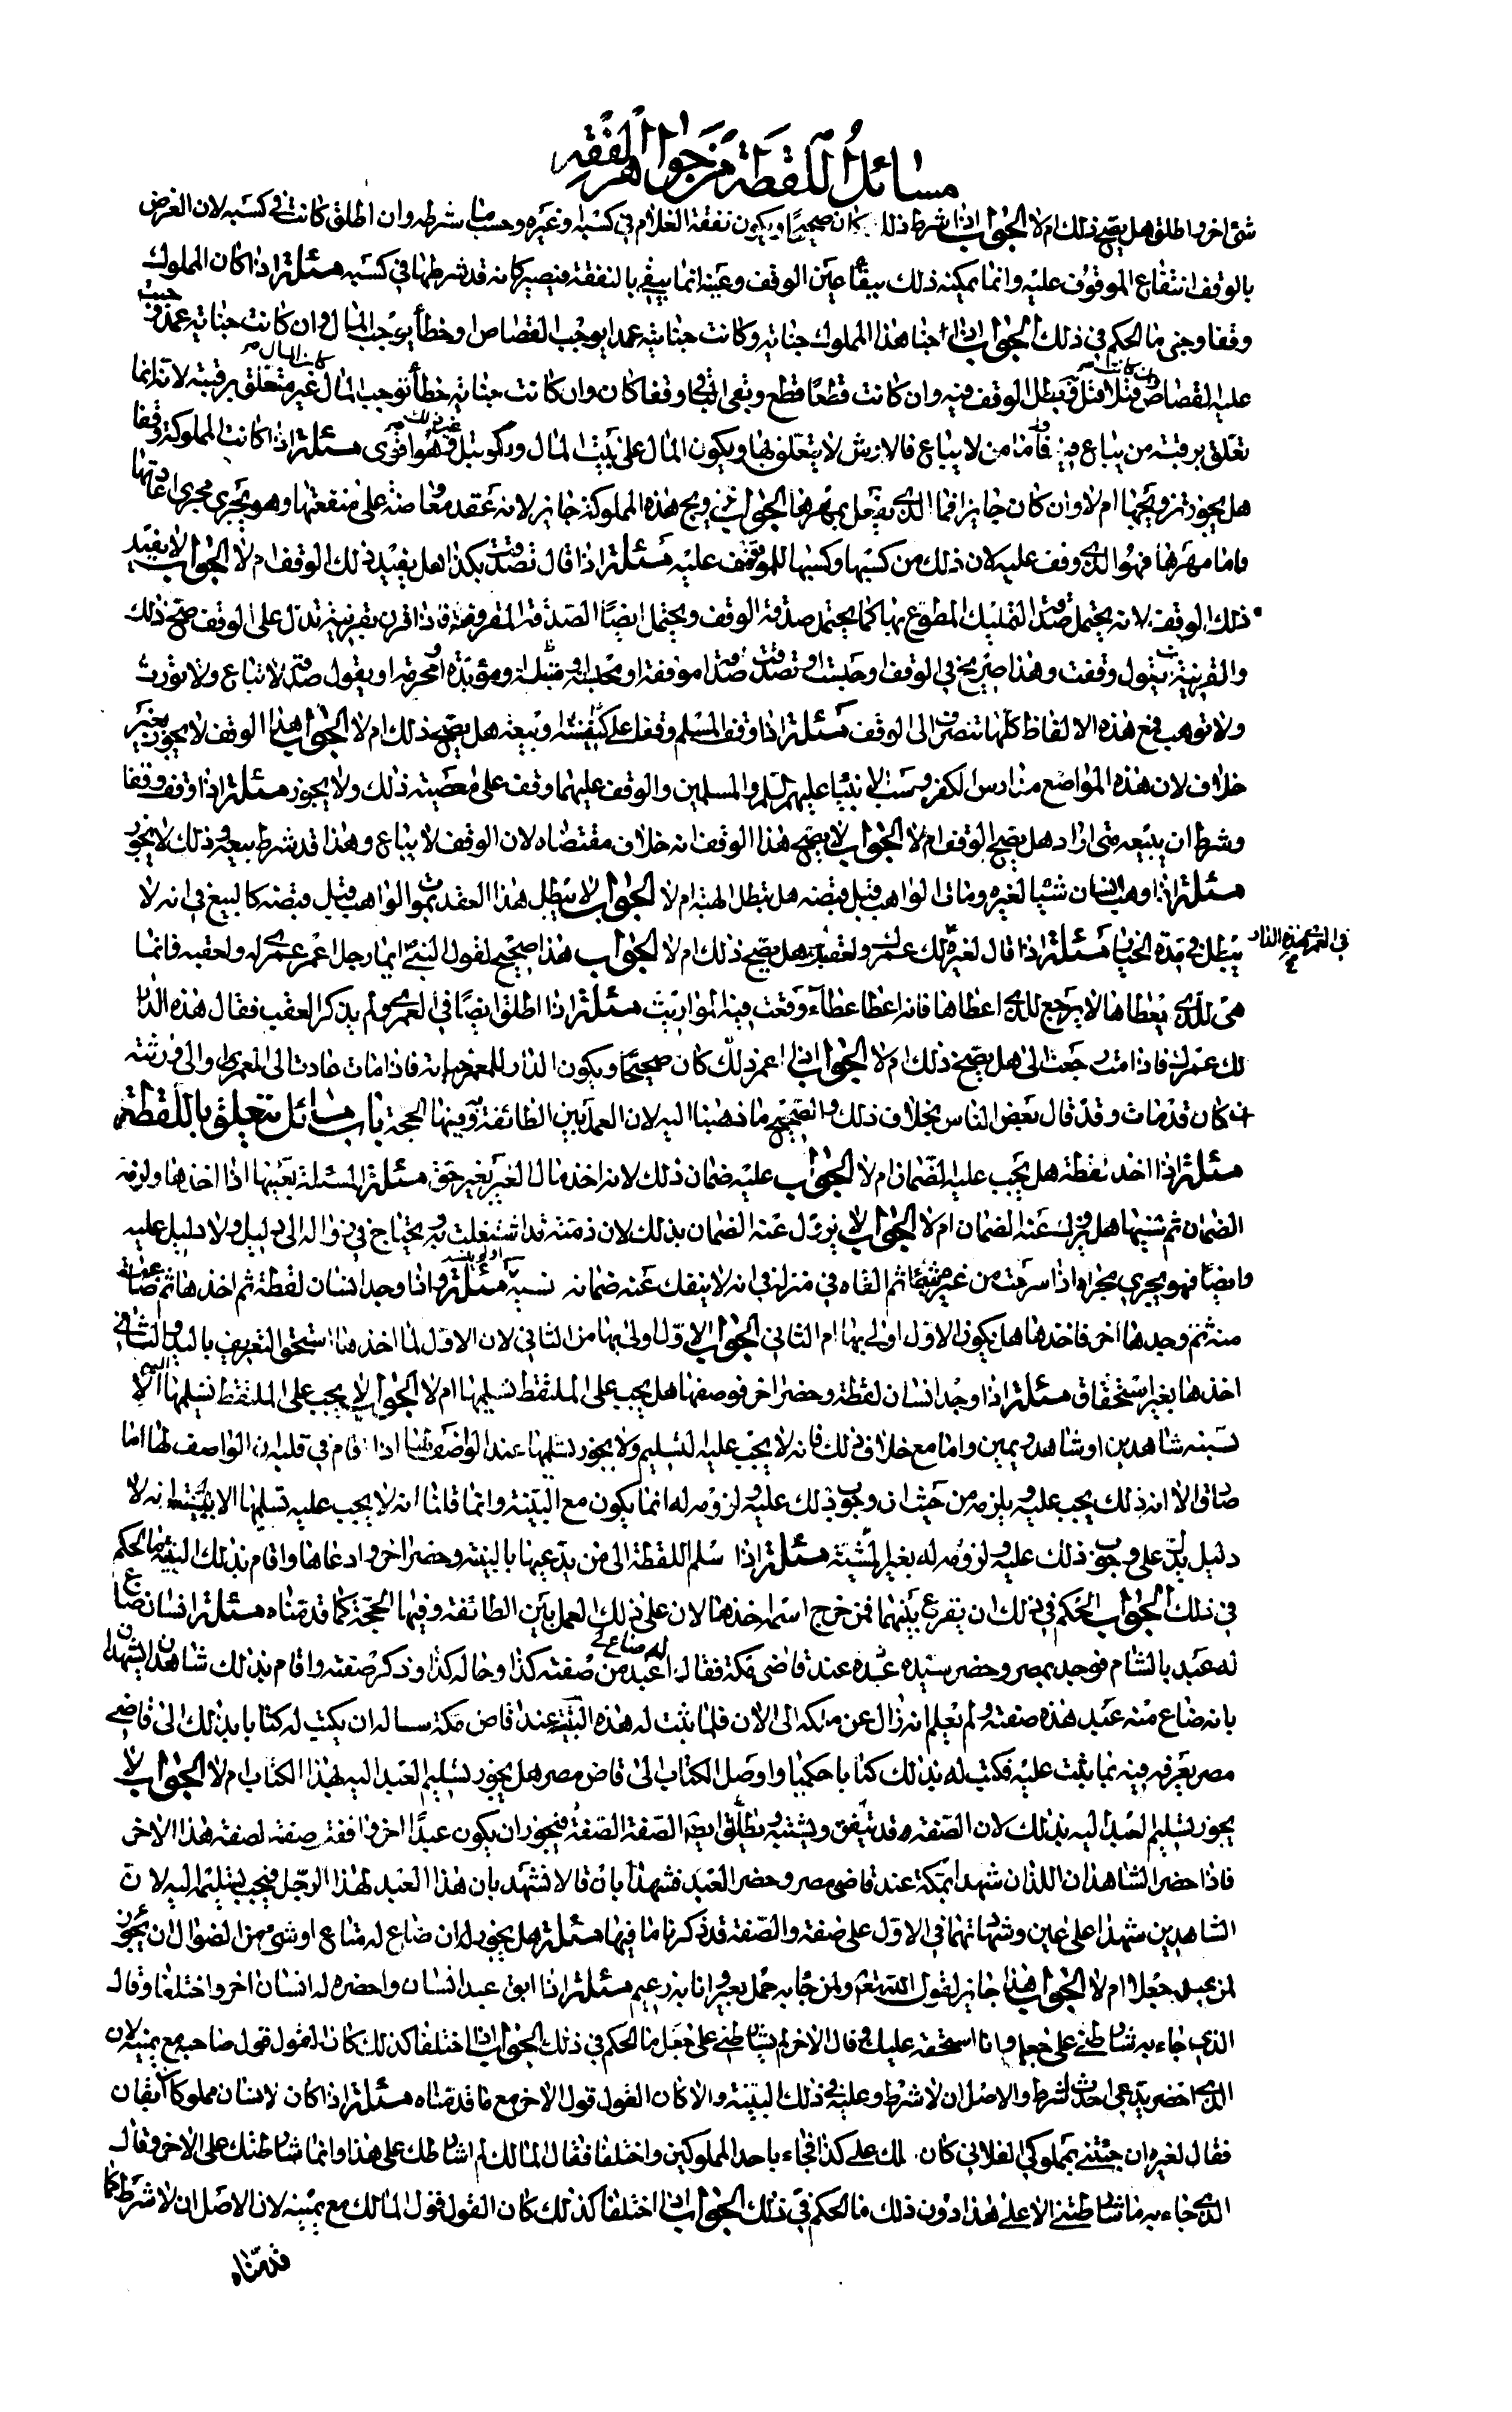 مسائل اللقطة من جواهر الفقه
شئ اخر واطلق هل يصح ذلك ام لا الجواب اذا شرط ذلك كان صحيحا ويكون نفقة الغلام في كسبه وغيره وحسب ما شرطه وان اطلق كانت في كسبه لان الغرض
بالوقف انتفاع الموقوف عليه وانما يمكنه ذلك ببقاء عين الوقف وعينه انما يبقى بالنفقة فيصير كانه قد شرطها في كسبه مسئلة اذا كان المملوك
وقفا وجنى ما الحكم في ذلك الجواب اذا جنا هذا المملوك جناية وكانت جنايته عمدا يوجب القصاص او خطأ يوجب المال فان كانت جناية عمد وجب
عليه القصاص فان كانت قتلا قتل فبطل الوقف فيه وان كانت قطعا قطع وبقى الباقي وقفا كان وان كانت جناية خطأ توجب المال كان المال غير متعلق برقبته لانه انما
تعلق برقبة من يباع فيه فاما من لا يباع فالارش لا يتعلق بها ويكون المال على بيت المال ولو قيل غير ذلك فهو اقوى مسئلة اذا كانت المملوكة وقفا
هل يجوز تزويجها ام لا وان كان جايزا فما الذي يفعل بمهرها الجواب تزويج هذه المملوكة جايز لانه عقد معاوضة على منفعتها وهو يجري مجرى اجارتها
واما مهرها فهو للذي وقف عليه لان ذلك من كسبها وكسبها للموقوف عليه مسئلة اذا قال تصدقت بكذا هل يفيد ذلك الوقف ام لا الجواب لا يفيد
ذلك الوقف لانه يحتمل صدقة التمليك المتطوع بها كما يحتمل صدقة الوقف ويحتمل ايضا الصدقة المفروضة فاذا اقرن بقرينة تدل على الوقف صح ذلك
والقرينة ان يقول وقفت وهذا صريح في الوقف او حبست او تصدقت صدقة موقفة او محبسة او مسبلة او مؤبدة او محرمة او يقول صدقة لا تباع ولا تورث
ولا توهب فمع هذه الالفاظ كلها تنصرف الى الوقف مسئلة اذا وقف المسلم وقفا على كنيسة او بيعة هل يصح ذلك ام لا الجواب هذا الوقف لا يجوز بغير
خلاف لان هذه المواضع مدارس الكفر وسب الانبياء عليهم السلم والمسلمين والوقف عليهما وقف على معصية ذلك ولا يجوز مسئلة اذا وقف وقفا
وشرط ان يبيعه متى اراد هل يصح الوقف ام لا الجواب لا يصح هذا الوقف لانه خلاف مقتضاه لان الوقف لا يباع وهذا قد شرط بيعه وذلك لا يجوز
مسئلة اذا وهب انسان شيئا لغيره ومات الواهب قبل قبضه هل تبطل الهبة ام لا الجواب لا يبطل هذا العقد بموت الواهب قبل قبضه كالبيع في انه لا
يبطل في مدة الخيار مسئلة اذا قال لغيره لك عمرك ولعقبك هل يصح ذلك ام لا الجواب هذا صحيح لقول النبي ايما رجل اعمر عمرى له ولعقبه فانما
في العمر هذه الدار
هي للذي يعطاها لا يرجع للذي اعطاها فانه اعطا عطاء وقعت فيه المواريث مسئلة اذا اطلق ايضا في العمرى ولم يذكر العقب فقال هذه الدار
لك عمرك فاذا مت رجعت الى هل يصح ذلك ام لا الجواب اذا اعمر ذلك كان صحيحا ويكون الدار للمعمر حياته فاذا مات عادت الى المعمر او الى ورثته
ان كان قد مات وقد قال بعض الناس بخلاف ذلك والصحيح ما ذهبنا اليه لان العمل بين الطائفة وفيها الحجة باب مسائل تتعلق باللقطة
مسئلة اذا اخذ لقطة هل يجب عليه الضمان ام لا الجواب عليه ضمان ذلك لانه اخذ مال الغير بغير حق مسئلة المسئلة بعينها اذا اخذها ولزمه
الضمان ثم هل يزول عنه الضمان ام لا الجواب لا يزول عنه الضمان بذلك لان ذمته قد اشتغلت به ويحتاج في زواله الى دليل ولا دليل عليه
وايضا فهو يجري مجرى اذا سرقت من غيره شيئا ثم القاه في منزله في انه لا ينفك عنه ضمانه مسئلة واذا وجد انسان لقطة ثم اخذها ثم ضاعت
منه ثم وجدها اخر فاخذها هل يكون الاول اولى بها ام الثاني الجواب الاول اولى بها من الثاني لان الاول لما اخذها استحق التعريف باليد والثاني
اخذها بغير استحقاق مسئلة اذا وجد انسان لقطة وحضر اخر فوصفها هل يجب على الملتقط تسليمها ام لا الجواب لا يجب على الملتقط تسليمها اليه الا
ببينة شاهدين او شاهد ويمين واما مع خلاف ذلك فانه لا يجب عليه التسليم ولا يجوز تسليمها عند الوصف لها اذا قام في قلبه ان الواصف لها اما
صادق الا ان ذلك يجب عليه ويلزمه من حيث ان وجوب ذلك عليه ولزومه له انما يكون مع البينة وانما قلنا انه لا يجب عليه تسليمها الا ببينة لانه لا
دليل يدل على وجوب ذلك عليه ولزومه له بغير البينة مسئلة اذا سلم اللقطة الى من يدعيها بالبينة وحضر اخر وادعاها واقام بذلك البينة ما الحكم
في ذلك الجواب الحكم في ذلك ان يقرع بينهما فمن خرج اسمه اخذها لان على ذلك العمل بين الطائفة وفيها الحجة كما قدمناه مسئلة انسان ضاع
له عبد بالشام فوجد بمصر وحضر سيده عند قاضي مكة فقال له ضاع لي عبد من صفته كذا وحاله كذا وذكر صفته واقام بذلك شاهدين يشهدان
بانه ضاع منه عبد هذه صفته ولم يعلم انه زال عن ملكه الى الان فلما ثبت له هذه البينة عند قاضى مكة ساله ان يكتب له كتابا بذلك الى قاضي
مصر يعرفه فيه بما يثبت عليه فكتب له بذلك كتابا حكميا واوصل الكتاب الى قاضى مصر هل يجوز تسليم العبد اليه بهذا الكتاب ام لا الجواب لا
يجوز تسليم العبد اليه بذلك لان الصفة قد تتفق ويشتبه ويطابق ايضا الصفة الصفة فيجوز ان يكون عبدا اخر وافقة صفته لصفة هذا الاخر
فاذا حضر الشاهدان اللذان شهدا بمكة عند قاضى مصر وحضر العبد فشهدا بان قالا نشهد بان هذا العبد لهذا الرجل فيجب تسليمه اليه لان
الشاهدين شهدا على عين وشهادتهما في الاول على صفة والصفة قد ذكرنا ما فيها مسئلة هل يجوز لمن ضاع له متاع او شئ من الضوال ان يجعل
لمن يجئ به جعلا ام لا الجواب هذا جايز لقول الله تعالى ولمن جاء به حمل بعير وانا به زعيم مسئلة اذا ابق عبد لانسان واحضره له انسان اخر واختلفا وقال
الذي جاء به شارطتني على جعل وانا استحقه عليك وقال الاخر لم تشارطني على جعل ما الحكم في ذلك الجواب اذا اختلفا كذلك كان القول قول صاحبه مع يمينه لان
الذي احضر يدعي احداث لشرط والاصل ان لا شرط وعليه في ذلك البينة والا كان القول قول الاخر مع ما قدمناه مسئلة اذا كان لانسان مملوكا ابقان
فقال لغيره ان جئتني بمملوكي الفلاني كان لك على كذا فجاء باحد المملوكين واختلفا فقال المالك لم اشارطك على هذا وانما شارطتك على الاخر وقال
الذي جاء به ما شارطتني الا على هذا دون ذلك ما الحكم في ذلك الجواب اذا اختلفا كذلك كان القول قول المالك مع يمينه لان الاصل ان لا شرط كما
قدمناه